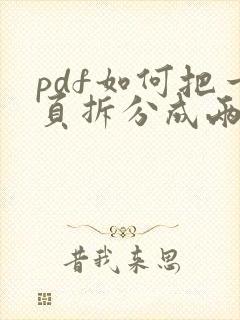 pdf如何把一
页拆分成两
昔我来思